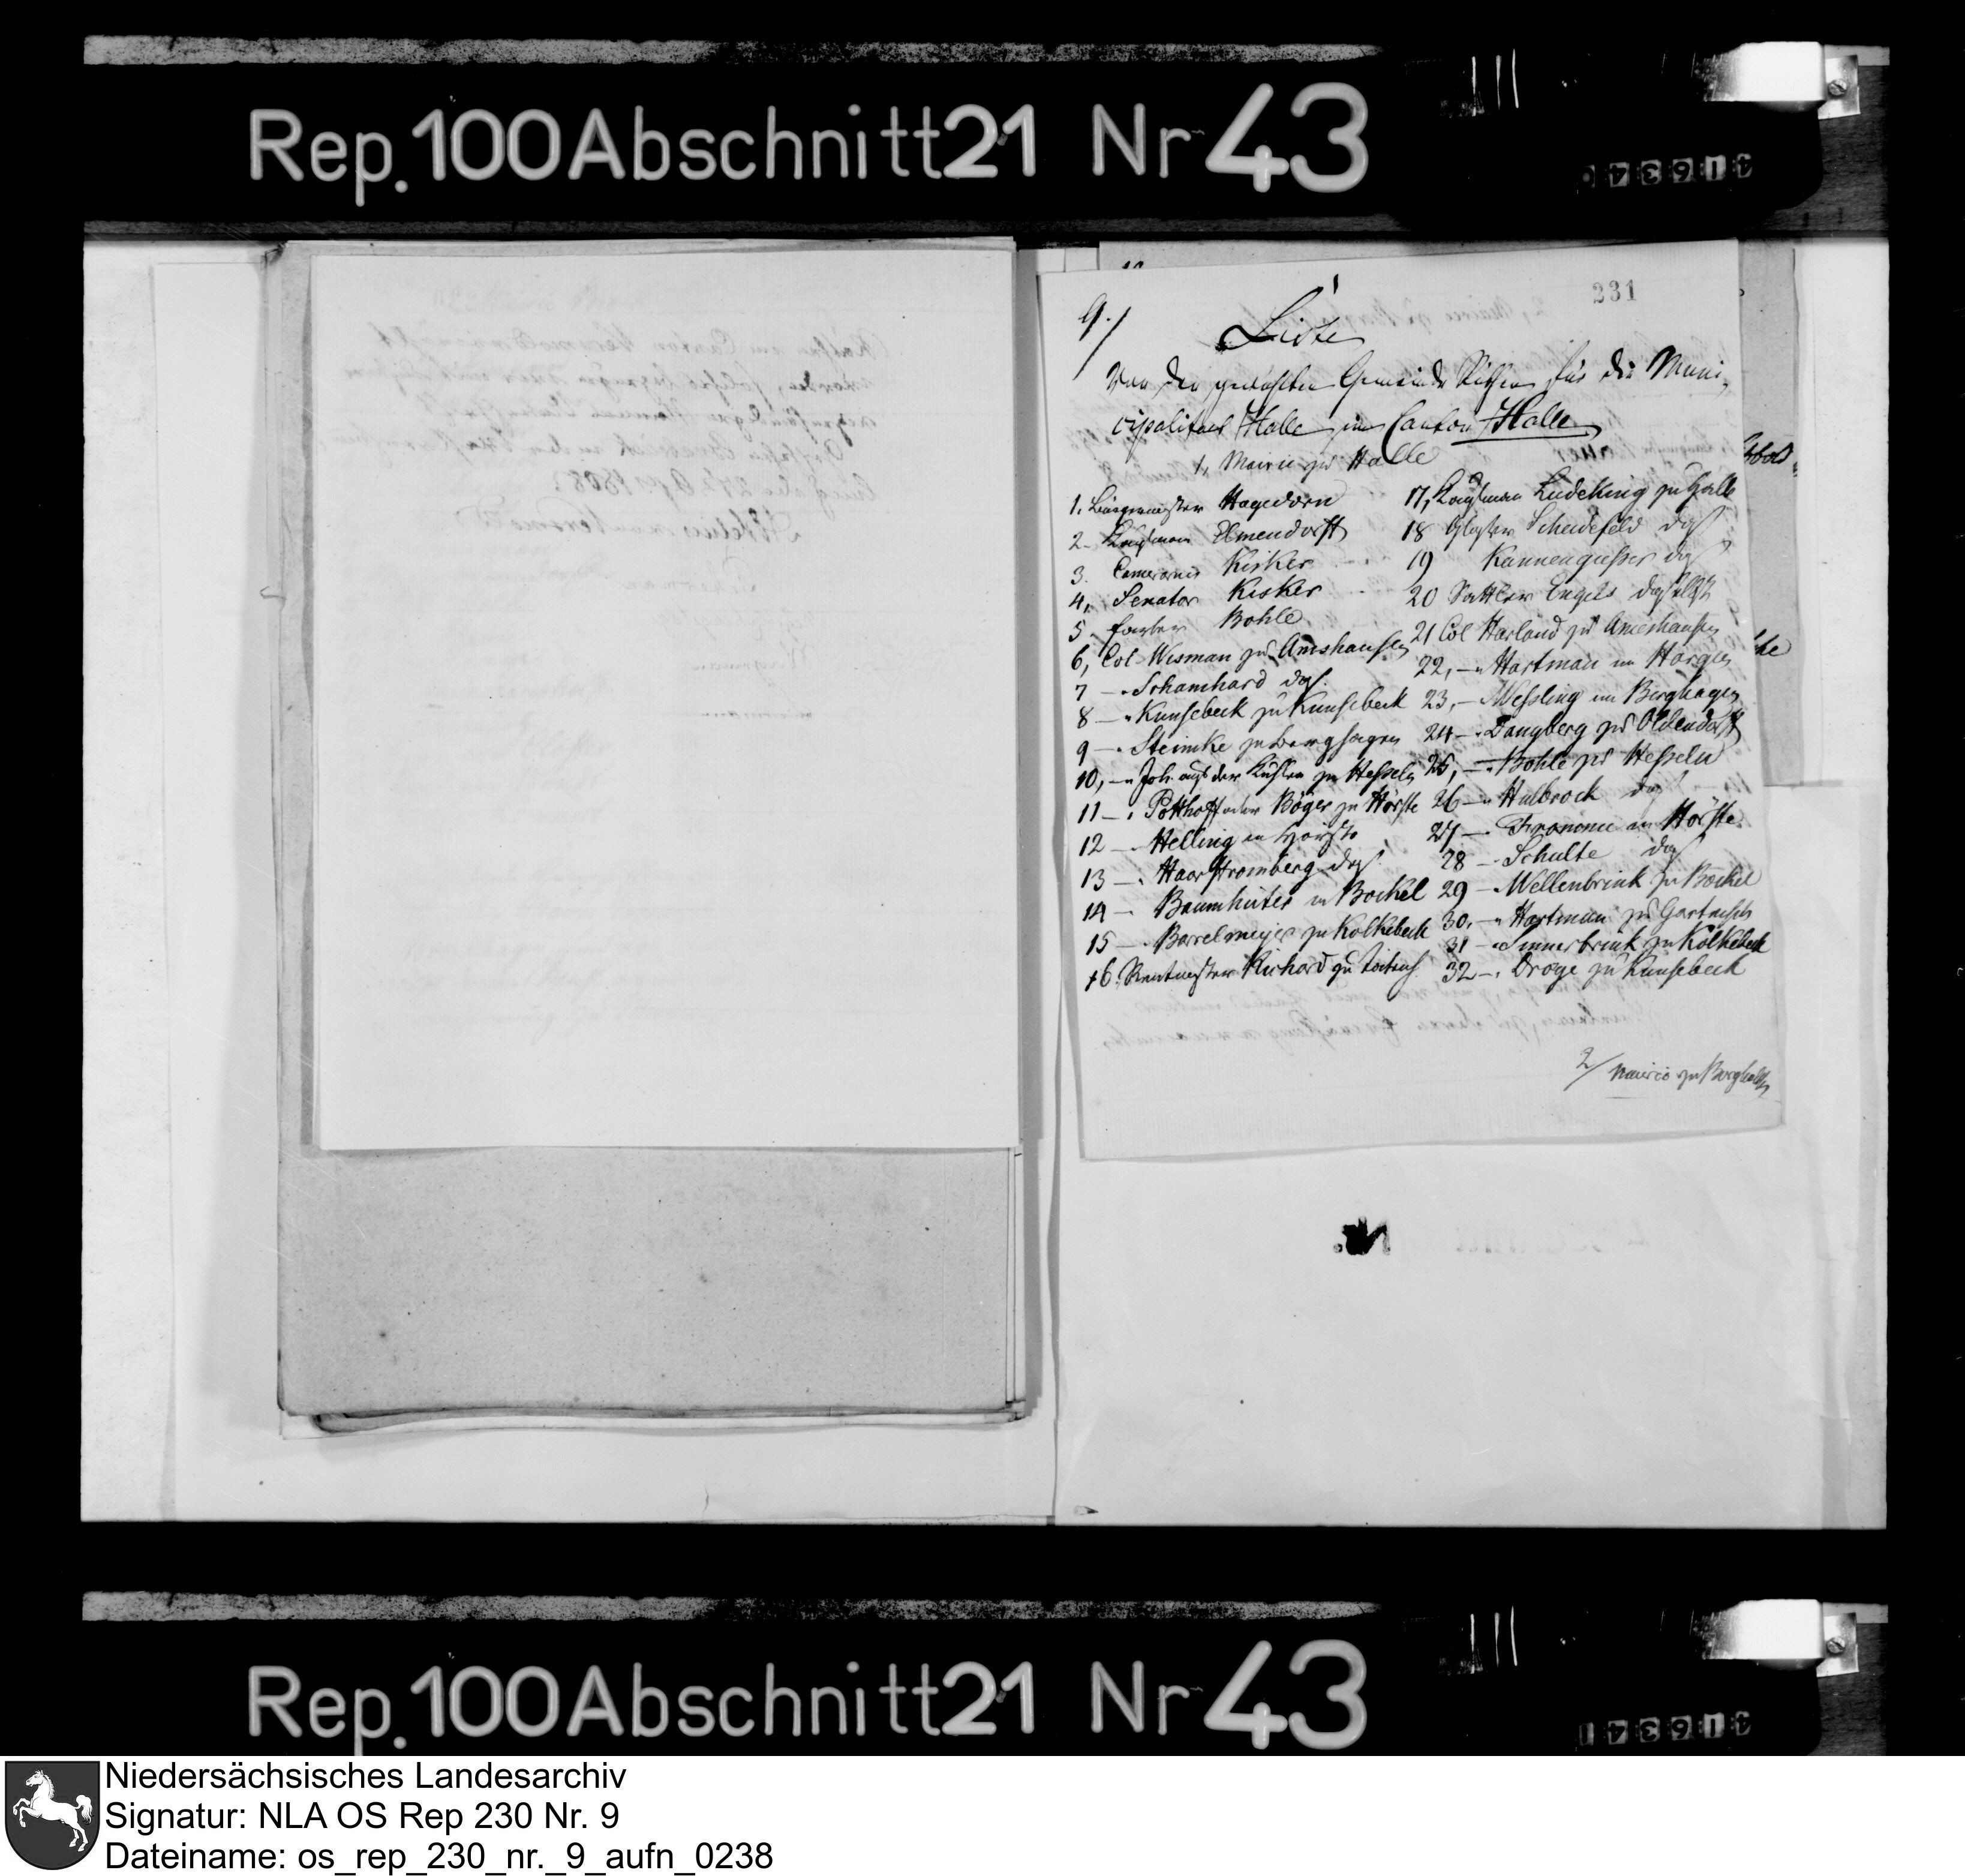 Rep. 100 Abschnitt 21 Nr 43
41634
231
9./
Liste
Von den gewählten Gemeinde Räthen für die Muni-
cipalitaet Halle im Canton Halle
1, Mairie zu Halle
1. Bürgermeister Hagedorn
2. Kaufman Elmendorff
3. Camerarius Kisker
4, Senator Kisker
5. Färber Bohle
6, Col Wisman zu Amshausen
7 —" Schamhard das.
8 —" Kunsebeck zu Kunsebeck
9 —" Steinke zu Berghagen
10, —" Joh. auf der Küllen zu Hesseln
11 —" Potthoff oder Böger zu Hörste
12 —" Helling in Hörste
13 —" Haarstromberg das.
14 —" Baumhüter in Bockel
15 —" Barrelmeyer zu Kolkebeck
16. Rentmeister Richard zu
17, Kaufman Lüdeking zu Halle
18 Glaser Scheidefeld das
19 Kannengießer das
20 Sattler Engels daselbst
21 Col Harland zu Ameshausen
22, —" Hartman im
23, — Wessling im Berghagen
24 —" Dangberg zu Oldendorff
25, —" Bohle zu Hesseln
26 —" Halbrock das
27 —" in Hörste
28 —" Schulte das
29 — Wellenbrink zu Bockel
30, —" Hartman zu Gartnisch
31 —" Sunnerbrink zu Kölkebeck
32 —" Droge zu Kunsebeck
2/ Mairie zu Borgholtz
Rep. 100 Abschnitt 21 Nr 43
41634
Niedersächsisches Landesarchiv
Signatur: NLA OS Rep 230 Nr. 9
Dateiname: os_rep_230_nr._9_aufn_0238